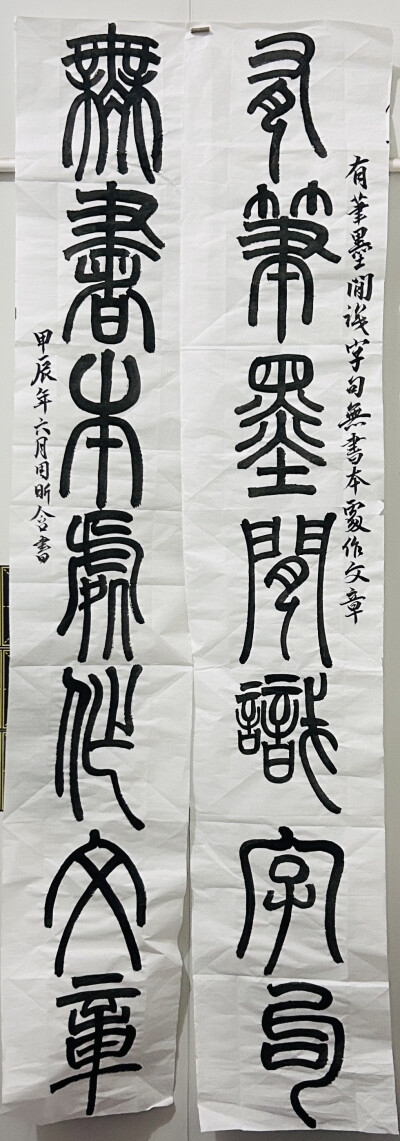 有筆墨間識字句
有筆墨間識字句無書本處作文章
無書本處作文章
甲辰年六月周昕含書